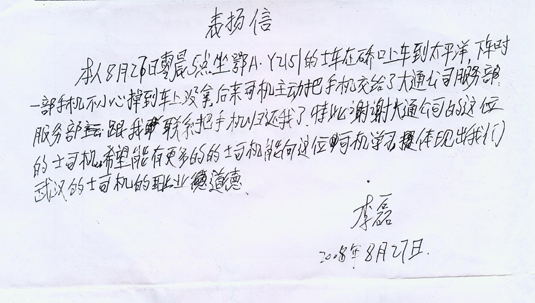 表扬信
本人8月27日早晨5点坐鄂A·Y2151的士车在硚口上车到太平洋,下车时
一部手机不小心掉到车上没拿后来司机主动把手机交给了大通公司服务部
服务部 跟我联系把手机归还我了.特此谢谢大通公司的这位
的士司机.希望能有更多的的士司机能向这位司机学习 体现出我们
武汉的士司机的职业道德
李磊
2008年8月27日.